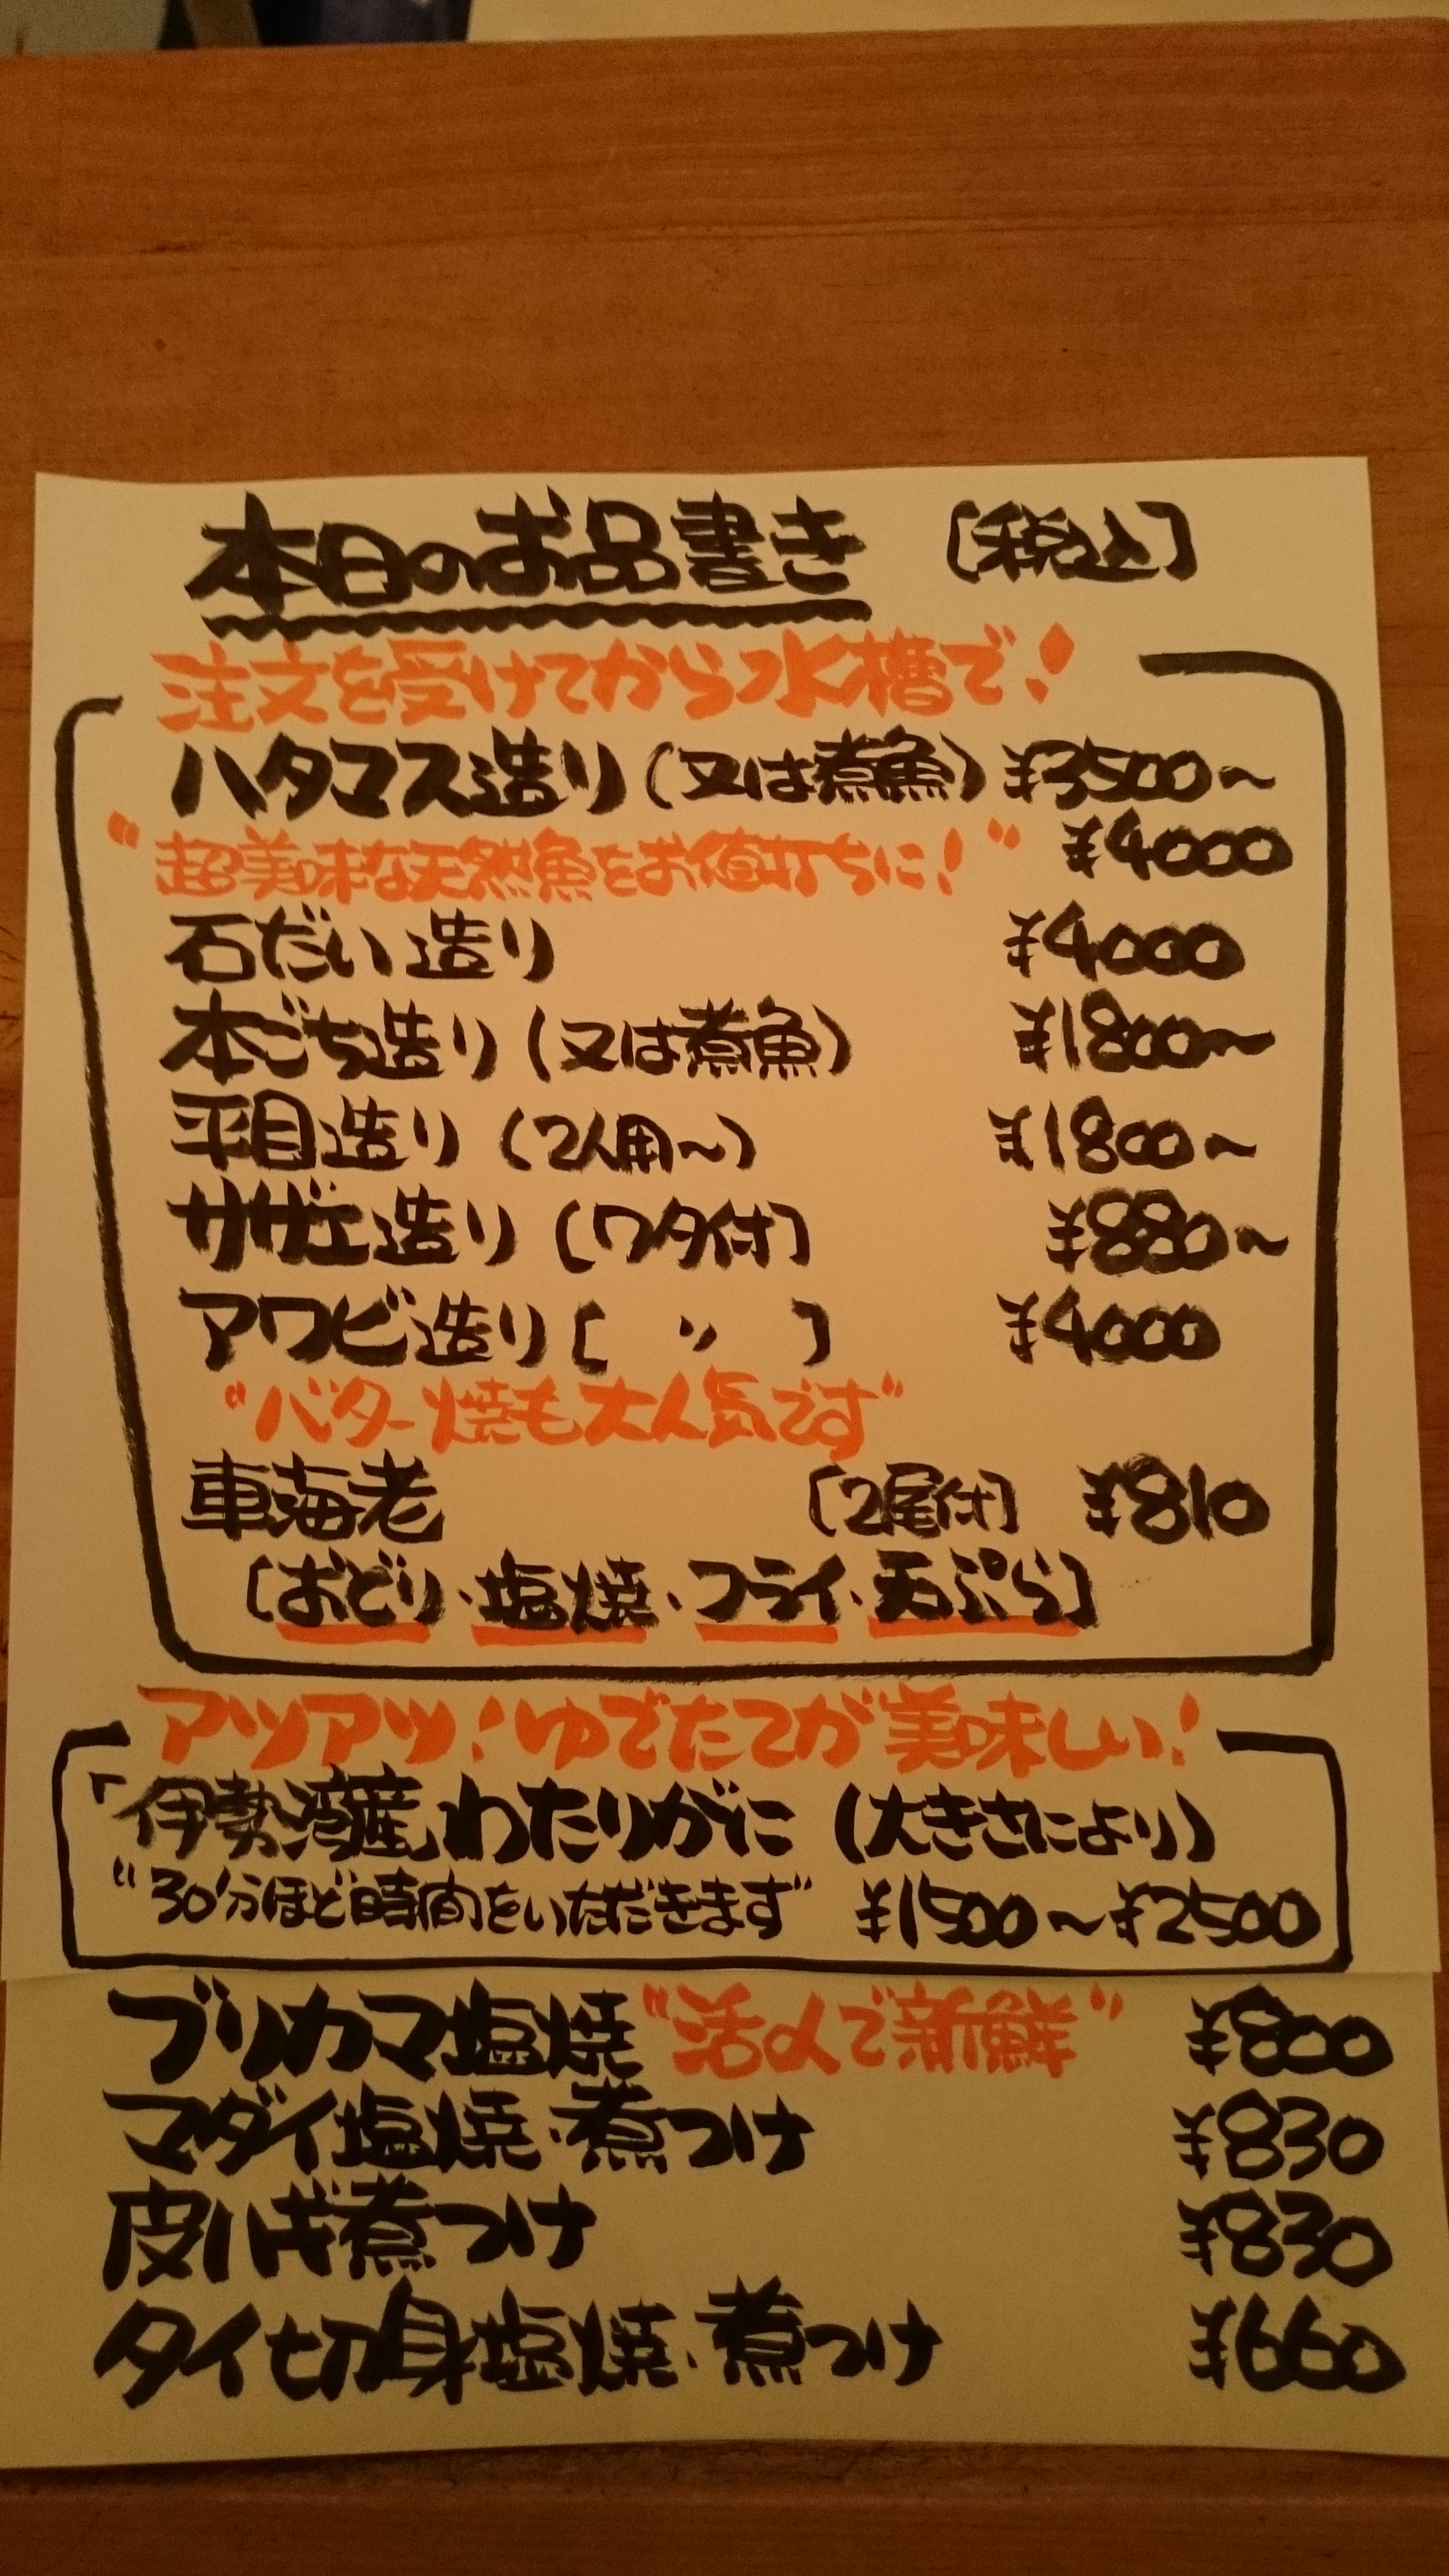 本日のお品書き [税込]
注文を受けてから水槽で!
ハタマス造り(又は煮魚) ¥3500~
¥4000
"超美味な天然魚をお値打ちに!"
石だい造り ¥4000
本ごち造り(又は煮魚) ¥1800~
平目造り(2人用~) ¥1800~
サザエ造り[ワタ付] ¥880~
アワビ造り[ 〃 ] ¥4000
"バター焼も大人気です"
車海老 [2尾付] ¥810
[おどり・塩焼・フライ・天ぷら]
アツアツ!ゆでたてが美味しい!
「伊勢湾産」わたりがに(大きさにより)
"30分ほど時間をいただきます" ¥1500~¥2500
ブリカマ塩焼"活〆で新鮮" ¥800
マダイ塩焼・煮つけ ¥830
皮ハギ煮つけ ¥830
タイ切身塩焼・煮つけ ¥660